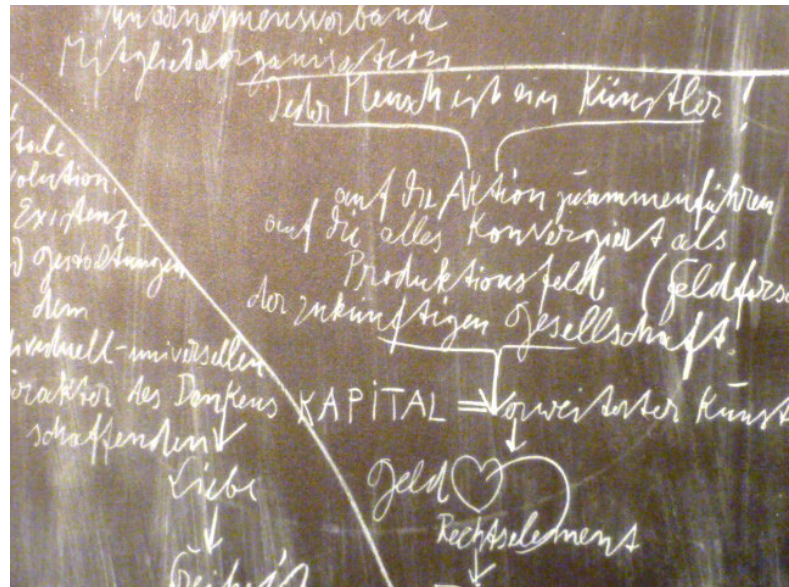 Unternehmensverband
Mitgliederorganisation
Jeder Mensch ist ein Künstler!
auf die Aktion zusammenführen
auf die alles Konvergiert als
Produktionsfeld (Feldfors
der zukünftigen Gesellschaft.
KAPITAL = erweiterter Kunst
Geld
Rechtselement
tale
volution,
Existenz-
d gestaltungen
dem
dividuell-universellen
arakter des Denkens
schaffenden
Liebe
Freiheit